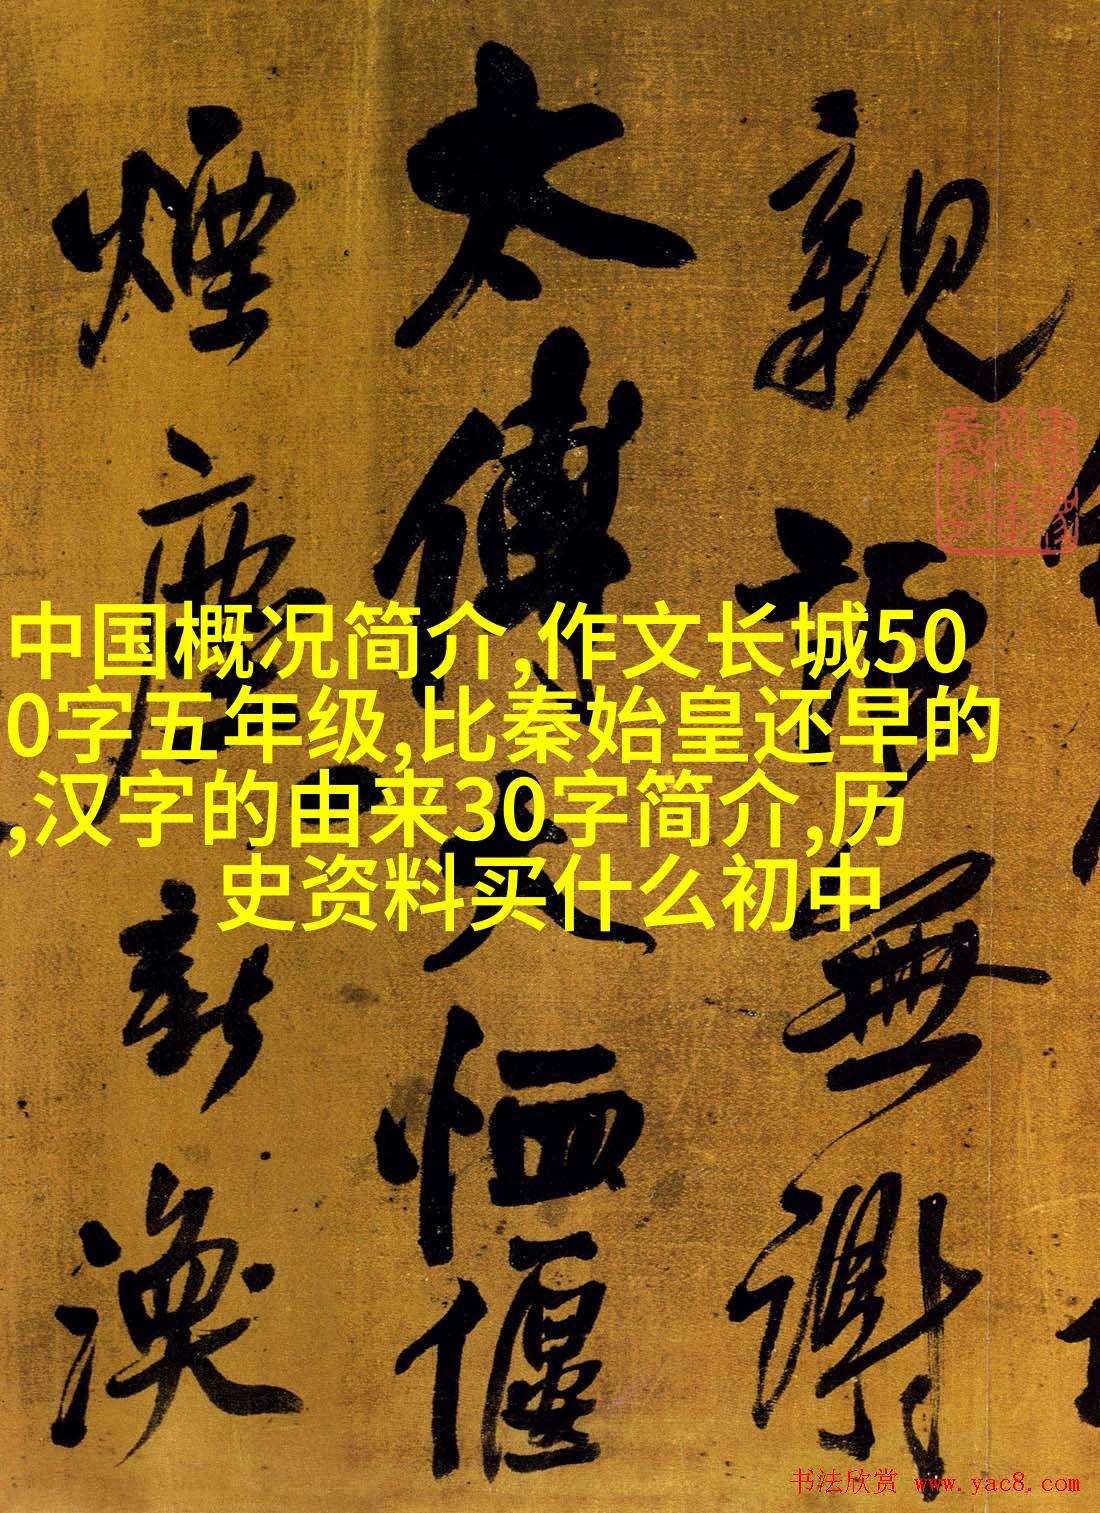 中国概况简介,作文长城50
0字五年级,比秦始皇还早的
,汉字的由来30字简介,历
史资料买什么初中
親
無謝
太傅
恤偃
煙塵新渙
书法欣赏 www.yac8.com